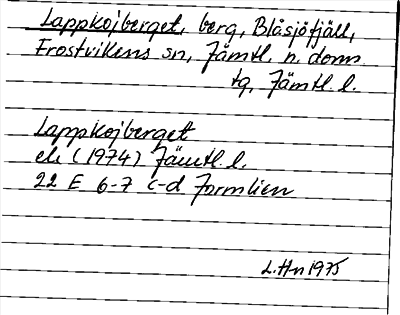 Lappkojberget, berg, Blåsjöfjäll,
Frostvikens sn, Jämtl. n. doms.
tg, Jämtl. l.
Lappkojberget
ek (1974) Jämtl. l.
22 E 6-7 c-d Jormlien
L. Hn 1975